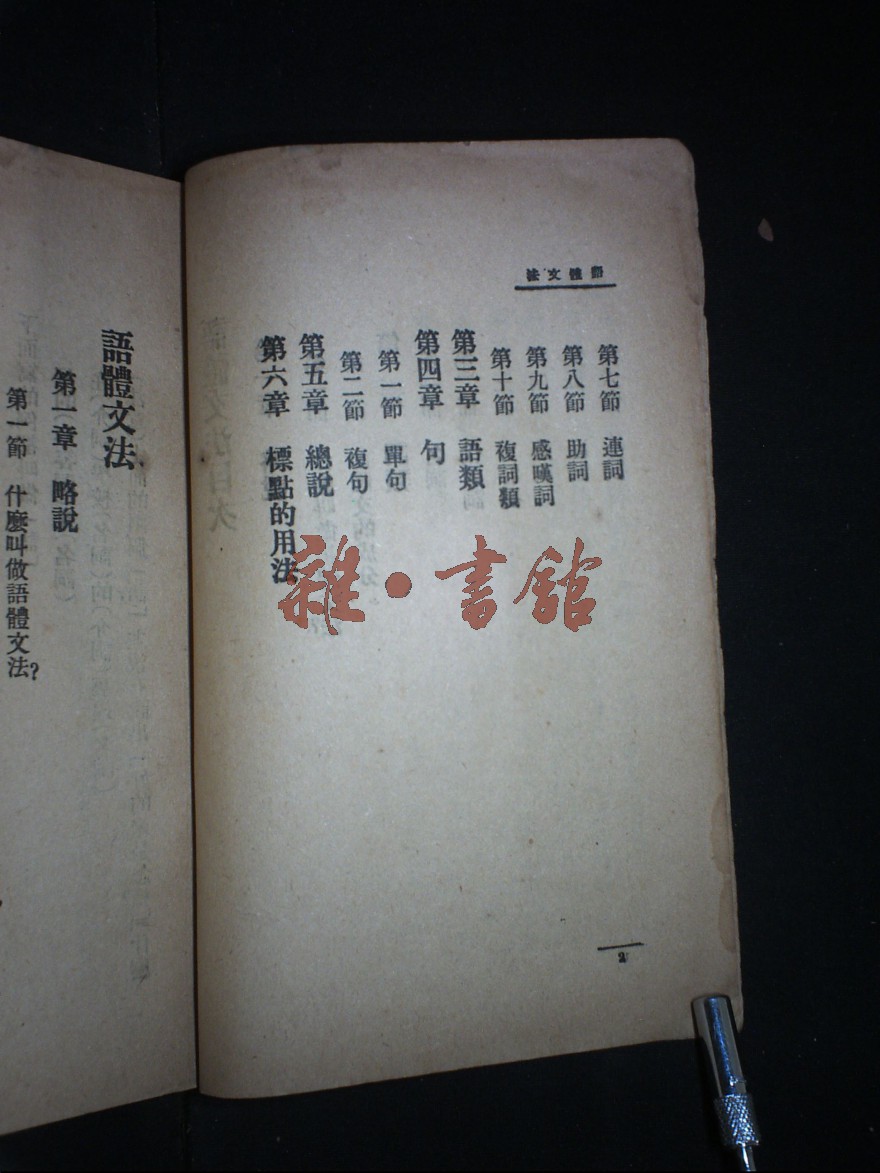 語體文法
第七節 連詞
第八節 助詞
第九節 感嘆詞
第十節 複詞類
第三章 語類
第四章 句
第一節 單句
第二節 複句
第五章 總說
第六章 標點的用法
2
語體文法
第一章 略說
第一節 什麼叫做語體文法?
雜·書館